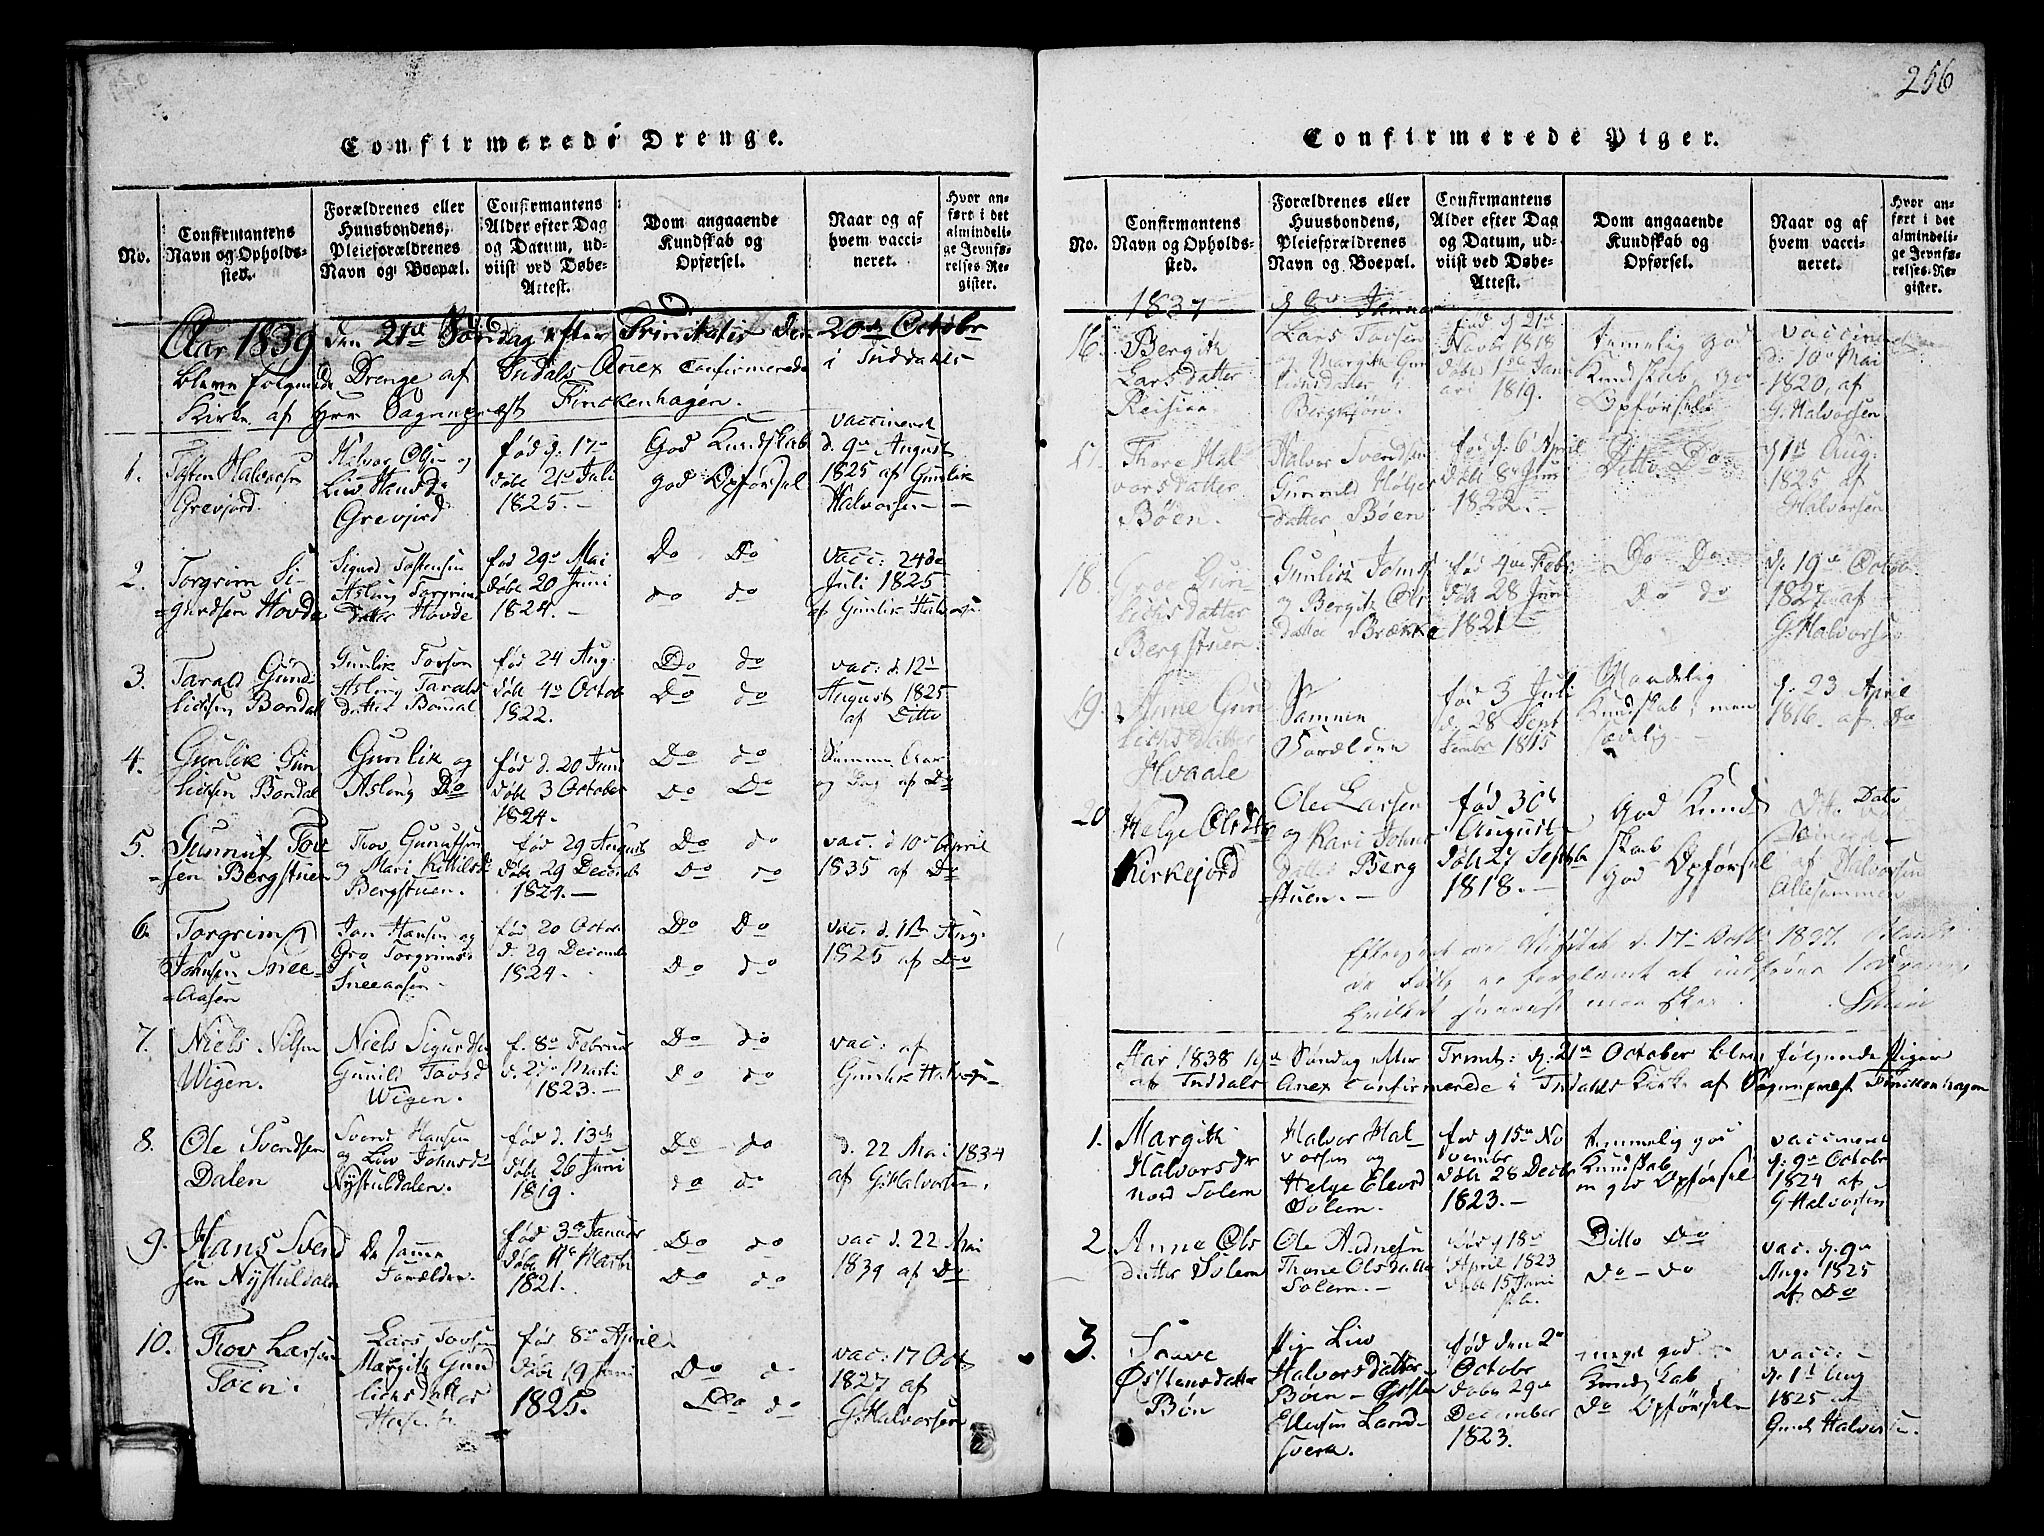 256
Confirmerede Drenge.
No.
Confirmantens Navn og Opholds-sted.
Forældrenes eller Huusbondens, Pleieforældrenes Navn og Boepæl.
Confirmantens Alder efter Dag og Datum, ud-viist ved Døbe-Attest.
Dom angaaende Kundskab og Opførsel.
Naar og af hvem vacci-neret.
Hvor an-ført i det almindeli-ge Jevnfø-relses-Re-gister.
Aar 1839 den 21de Søndag efter Trinitatis den 20de Octobr
bleve følgende Drenge af Indals Anex Confirmerede i Inddahls
Kirke af Herr Sognepræst Finckenhagen.
1.
Tosten Halvorsen
Grevjord.
Halvor Ols: og
Liv Hansd:
Grevjord
fød d. 17
døbt 21d Juli
1825.
God Kundskab
god Opførsel
vaccineret
d. 9de August
1825 af Gunlik
Halvorsen
2.
Torgrim Si-
gurdsen Hovde
Sigurd Tostensen
Asloug Torgrims
datter Hovde
fød 29de Mai
døbt 20 Juni
1824.
Do Do
do do
vacc: 24de
Juli 1825
af Gunlik Halvorse
3.
Tarald Gund-
lichsen Bondal
Gunlik Torson
Asloug Taralds
datter Bondal
fød 24 Aug:
døbt 4de Octobr
1822.
Do do
Do do
vac: d. 12
August 1825
af Ditto
4.
Gunlik Gun
lichsen Bondal
Gunlik og
Asloug Do
fød d. 20 Juni
døbt 3 October
1824.
Do do
do Do
Samme Aar
og Dag af Do
5.
Gunnuf Tov
sen Bergstuen
Tov Gunufsen
og Mari Kittilsd
Bergstuen.
fød 29 August
døbt 29 Decemb
1824.
Do do
Do do
vac. d. 10 April
1835 af Do
6.
Torgrim
Johnsen Snee-
aasen
Jon Hansen og
Gro Torgrimsd
Sneeaasen
fød 20 Octo
d. 29 Decemb
1824.
Do Do
Do do
vac. d. 1ste Aug.
1825 af Do
7.
Niels Nilsen
Wigen.
Niels Sigurds
Gunild Tovsd
Wigen.
f. 8de Februar
d. 27de Marti
1823.
Do do
Do do
vac: af
Gunlik Halvors
8.
Ole Svendsen
Dalen
Svend Hansen
og Liv Johnsd
Nystuldalen.
fød d. 13de
døbt 26 Juni
1819.
Do do
do do
d. 22 Mai 1834
af G: Halvorsen.
9.
Hans Svend
sen Nystuldalen
De samme
Forælder.
fød 3de Januar
døbt 11te Marti
1821.
Do do
Do do
vac d. 22 Mai
1839 af Do
10.
Tov Larsen
Lars Tovsen
Margith Gund
lichsdatter
fød 8de April
døbt 19 Juni
1825.
Do do
Do do
vac: 17 Oct
1827 af
G: Halvorsen
Confirmerede Piger.
No.
Confirmantens Navn og Opholds-sted.
Forældrenes eller Huusbondens, Pleieforældrenes Navn og Boepæl.
Confirmantens Alder efter Dag og Datum, ud-viist ved Døbe-Attest.
Dom angaaende Kundskab og Opførsel.
Naar og af hvem vacci-neret.
Hvor an-ført i det almindeli-ge Jevnfø-relses-Re-gister.
1837
d. 8de Januar
16.
Bergith
Larsdatter
Lars Tovsen
og Margith Gun
lichsdatter i
fød d. 21de
Novbr 1818
døbt 1ste Janu
ari 1819.
temelig god
Kundskab og
Opførsel
vaccineret
d. 10de Mai
1820, af
G. Halvorsen
17.
Thore Hal
vorsdatter
Bøen.
Halvor Svendsen
Gunnild Holjer
datter Bøen
fød d. 6 April
døbt 8de Juni
1822.
Ditto Do
d. 1ste Aug:
1825 af
Halvorsen
18.
Groe Gun
lichsdatter
Bergstuen.
Gunlich Joms
og Bergit Ols
datter Brække
fød 4de Febr
døbt 28 Juni
1821
Do Do
Do do
d. 19de Octob
1827 af
G. Halvorsen
19.
Anne Gun
lichsdatter
Hvaale
Samme
Forældre
fød 3 Juli
d. 28 Sept
tembr 1815
Maadelig
Kundskab, men
sædelig
d. 23 April
1816. af Do
20
Helge Olsdtr
Kirkejord
Ole Larsen
og Kari Johns
datter Berg
stuen.
fød 30te
August
døbt 27 Septbr
1818.
God Kund
skab
god Opførsel
af Halvorsen
Allesammen
Aar 1838 19de Søndag efter Trinit: d. 21de October bleve følgende Piger
af Inddals Anex Confirmerede i Indals Kirke af Sognepræst Finckenhagen
1.
Margith
Halvorsdtr
nord Solem
Halvor Hal
vorsen og
Helge Elevsd
Solem.
fød d. 15de No
vembr
døbt 28 Decbr
1823.
temmelig god
Kundskab
og god Opførsel
vaccineret
d. 9de Octobr
1824 af
G Halvorsen
2
Anne Ols
datter Solem
Ole Aadnesen
Thone Olsdatter
Solem.
fød d. 18de
April 1823
døbt 15 Juni
Ditto Do
do do
vac. d. 9de
Aug: 1825
af Do
3.
Østensdatter
Bøn
Pige Liv
Halvorsdatter
Bøen - Østen
Ellefsen Land
sverk.
fød den 2de
Octobr
døbt 29de
December
1823.
meget god
Kundskab
Do Opførsel
vacc:
d. 1ste Aug
1825 af
Gunl: Halvorse.